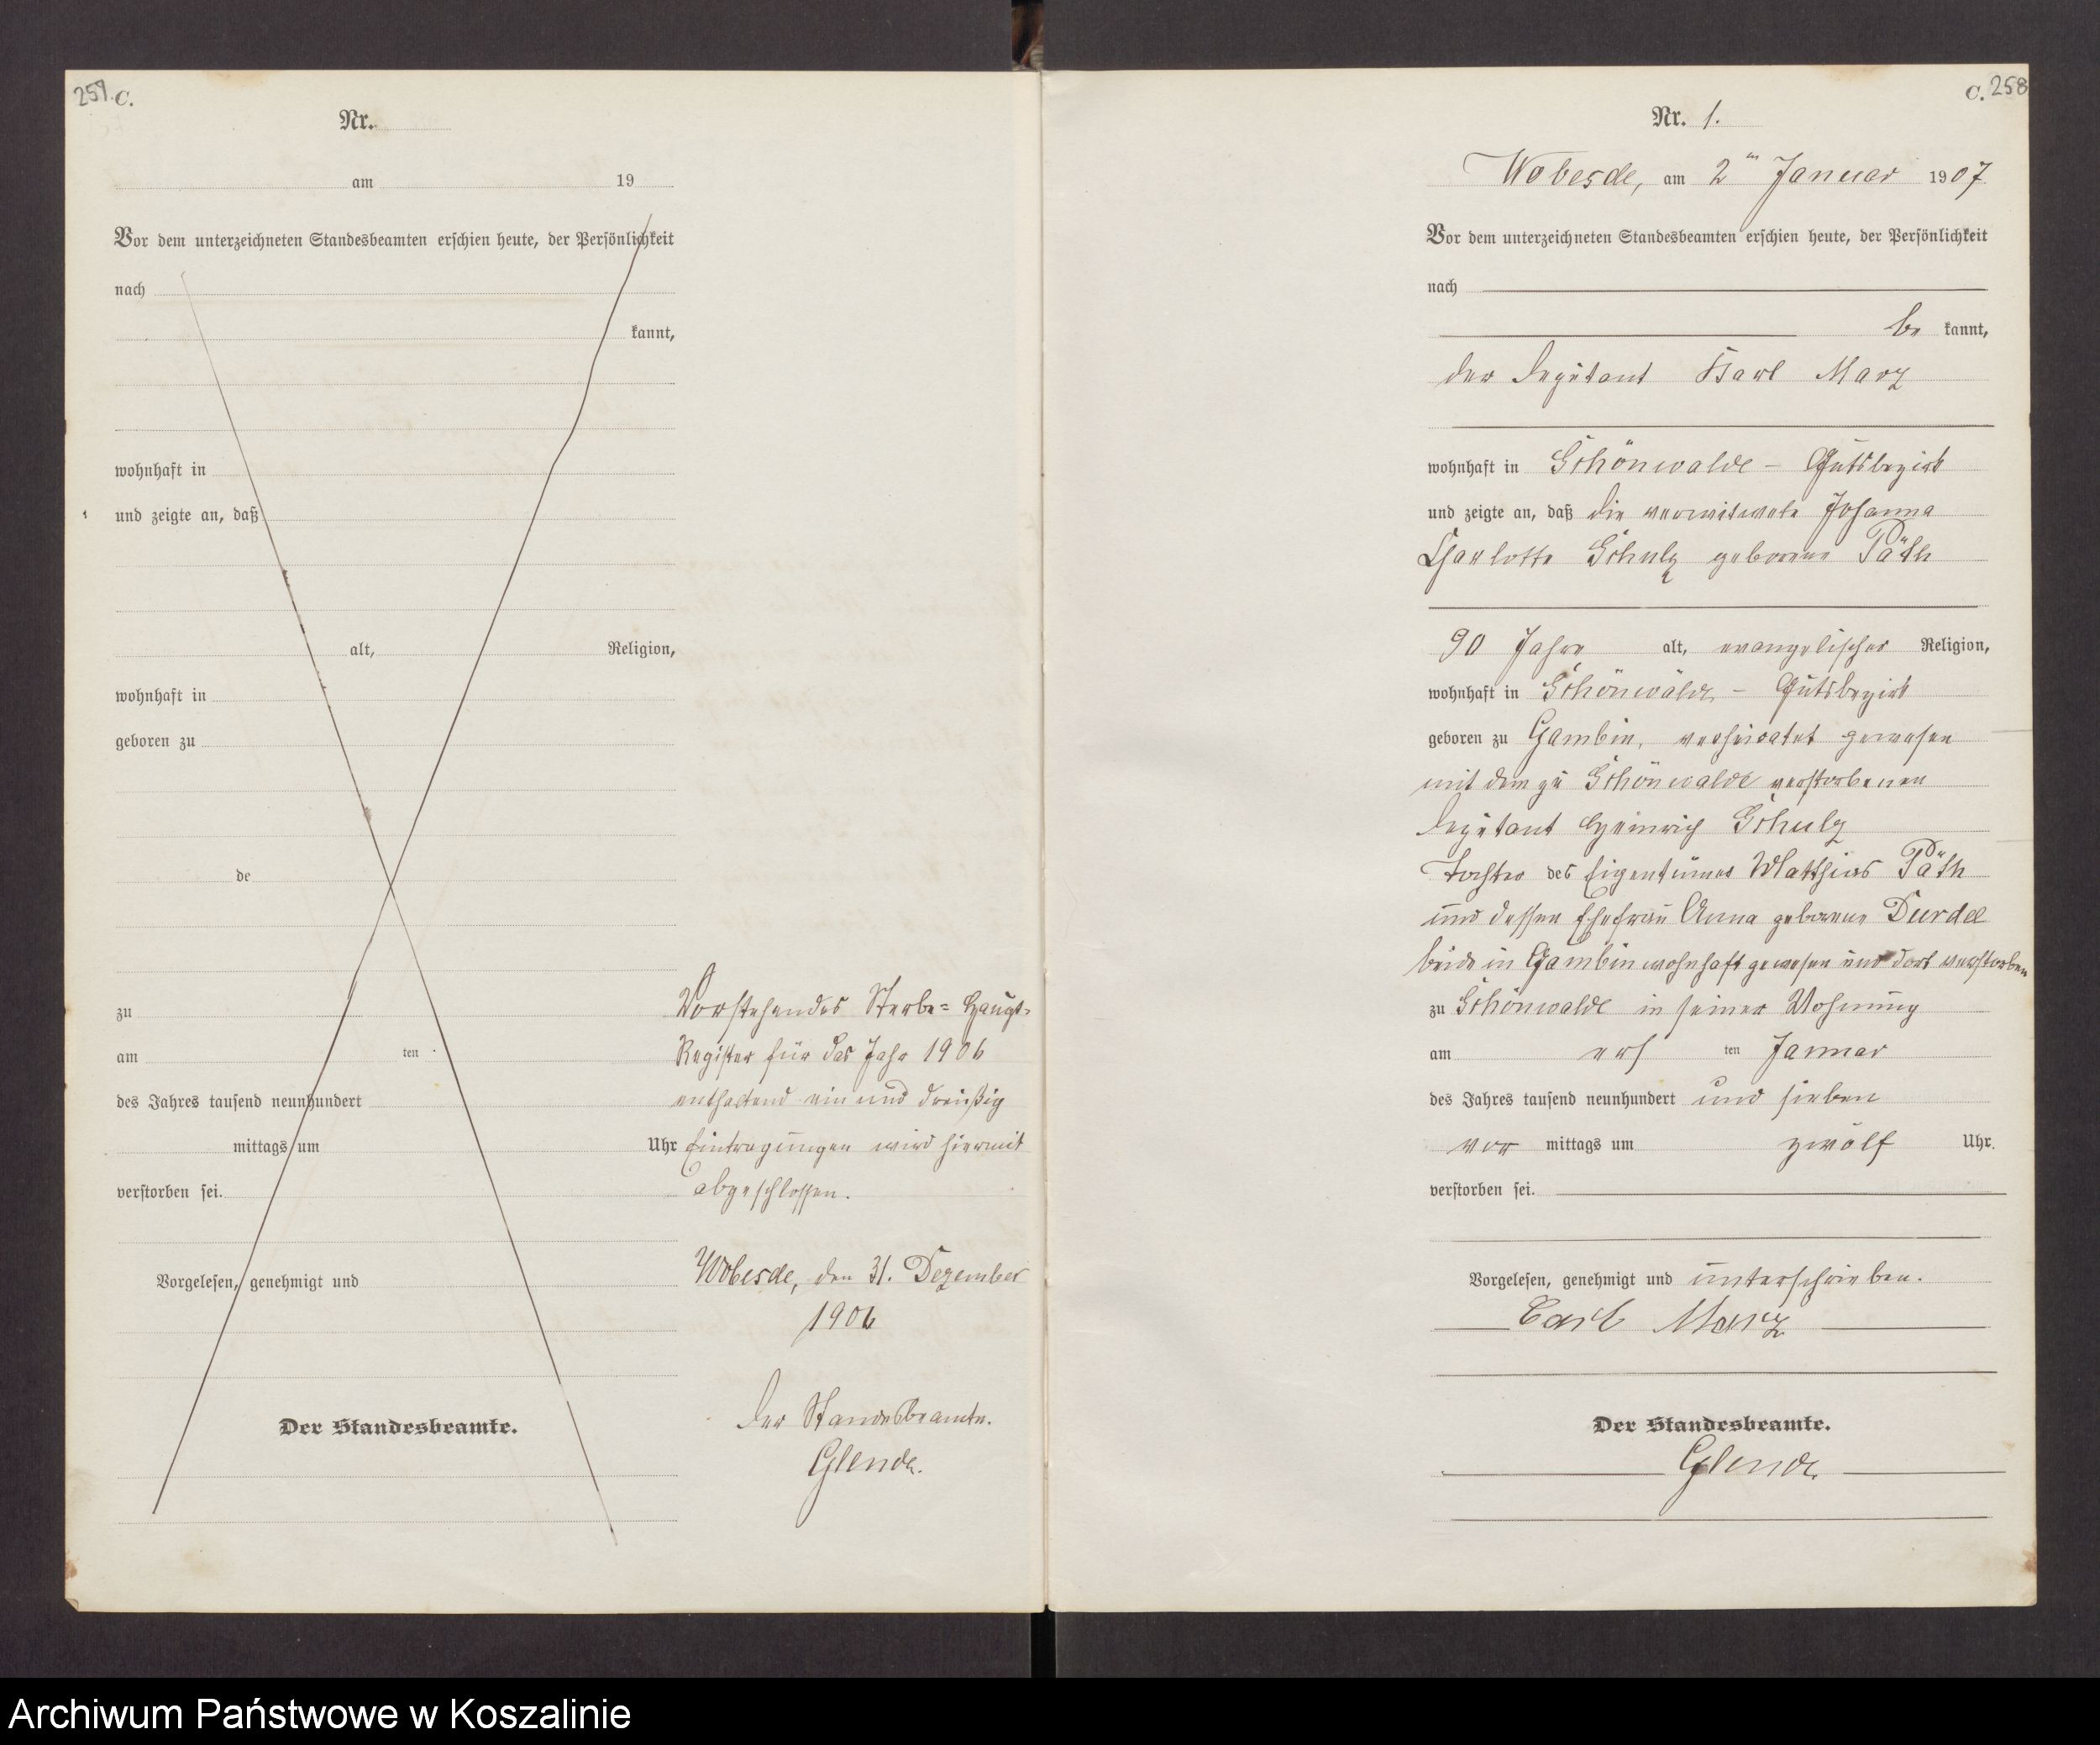 257. C.
Nr.
am 19
Vor dem unterzeichneten Standesbeamten erschien heute, der Persönlichkeit
nach
kannt,
wohnhaft in
und zeigte an, daß
alt, Religion,
wohnhaft in
geboren zu
de
zu
am ten
des Jahres tausend neunhundert
mittags um Uhr
verstorben sei.
Vorgelesen, genehmigt und
Der Standesbeamte.
Vorstehendes Sterbe= Haupt-
Register für das Jahr 1906
enthaltend ein und dreißig
Eintragungen wird hiermit
abgeschlossen.
Wobesde, den 31. Dezember
1906
Der Standesbeamte.
Glende.
C. 258
Nr. 1.
Wobesde, am 2ten Januar 1907
Vor dem unterzeichneten Standesbeamten erschien heute, der Persönlichkeit
nach
be kannt,
der Deputant Karl Marz
wohnhaft in Schönwalde - Gutsbezirk
und zeigte an, daß die verwitwete Johanna
Charlotte Schulz geborene Päth
90 Jahre alt, evangelischer Religion,
wohnhaft in Schönwalde - Gutsbezirk
geboren zu Gambin, verheiratet gewesen
mit dem zu Schönwalde verstorbenen
Deputant Heinrich Schulz
Tochter des Eigentümer Matthias Päth
und dessen Ehefrau Anna geborene Durdel
beide in Gambin wohnhaft gewesen und dort verstorben
zu Schönwalde in seiner Wohnung
am ers ten Januar
des Jahres tausend neunhundert und sieben
vor mittags um zwölf Uhr.
verstorben sei.
Vorgelesen, genehmigt und unterschrieben.
Carl Marz
Der Standesbeamte.
Glende.
Archiwum Państwowe w Koszalinie